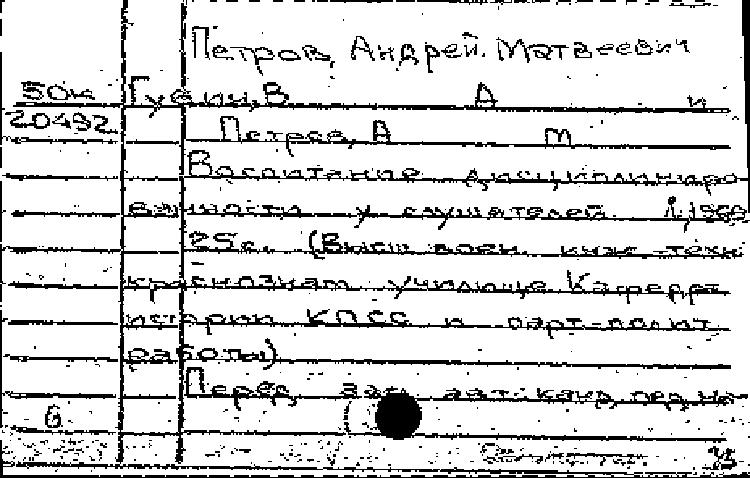 Петров, Андрей Матвеевич
50к Губин, В А и
20492 Петров, А М
Воспитание дисциплиниро-
ванности у слушателей 1969
25с. (Высш воен инж-техн
краснознам училище Кафедра
истории КПСС и парт-полит
работы)
Перед загл авт: канд пед на-
6